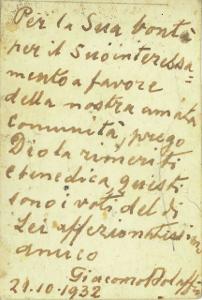 Per la Sua bontà
per il Suo interessa=
mento a favore
della nostra amata
comunità, prego
Dio la rimeriti
e benedica, questi
sono i voti del di
Lei affezionatissimo
amico
Giacomo Bolaffi
21.10.1932